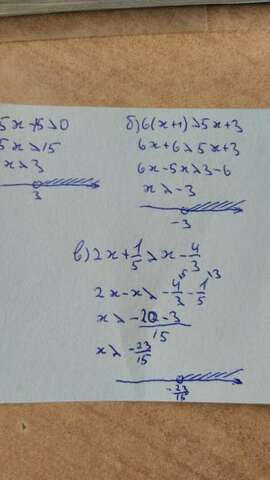 5x-15>0
5x>15
x>3
3
б) 6(x+1)>5x+3
6x+6>5x+3
6x-5x>3-6
x>-3
-3
в) 2x+1/5>x-4/3
2x-x>-4/3\5-1/5\3
x>-20-3/15
x>-23/15
-23/15